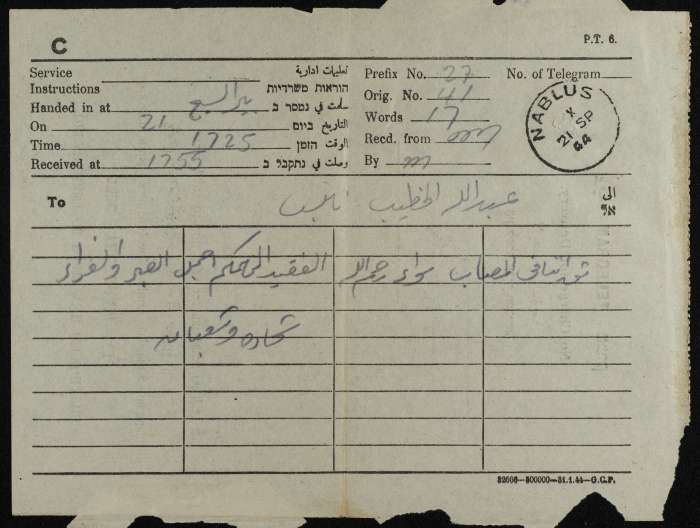 C
P.T. 6.
Service تعليمات ادارية
Instructions הוראות משרדיות
Handed in at بئر السبع سلمت في נמסר ב
On 21 التاريخ ביום
Time 1725 الوقت הזמן
Received at 1755 وصلت في נתקבל ב
Prefix No. 27 No. of Telegram
Orig. No. 41
Words 17
Recd. from
By
NABLUS
21 SP
44
To عبد الله الخطيب نابلس الى אל
المصاب سواء رحم الله الفقيد الهمكم اجمل الصبر والعزاء
شحاده
32666—500000—31.1.44—G.C.P.